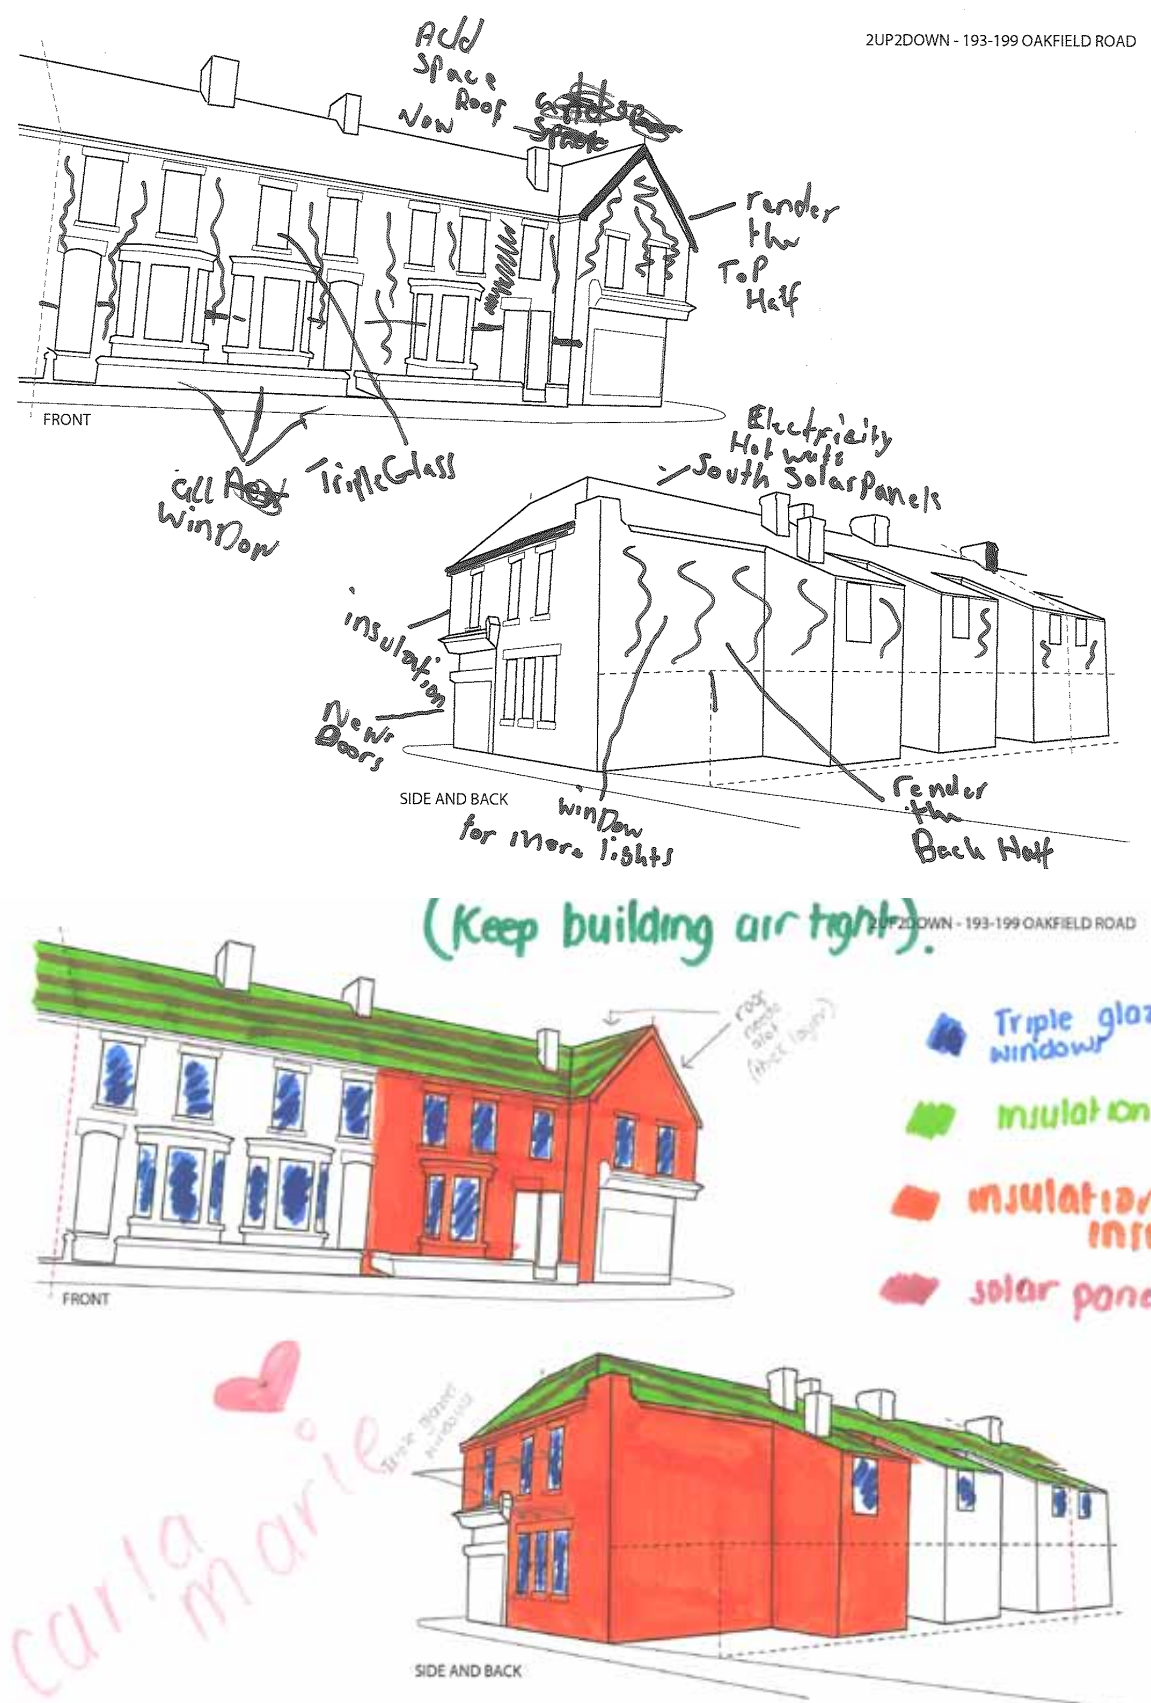 2UP2DOWN - 193-199 OAKFIELD ROAD
Add
Space
Roof
Now
render
the
Top
Half
FRONT
Triple Glass
all
winDow
Electricity
Hot wate
South Solar Panels
insulation
New
Doors
SIDE AND BACK
winDow
for more lights
render
the
Back Half
(Keep building air tight).
2UP2DOWN - 193-199 OAKFIELD ROAD
roof
needs
alot
(thick layer)
Triple glaz
windows
insulation
insulation
insi
solar pane
FRONT
Triple glazed
windows
carla
marie
SIDE AND BACK